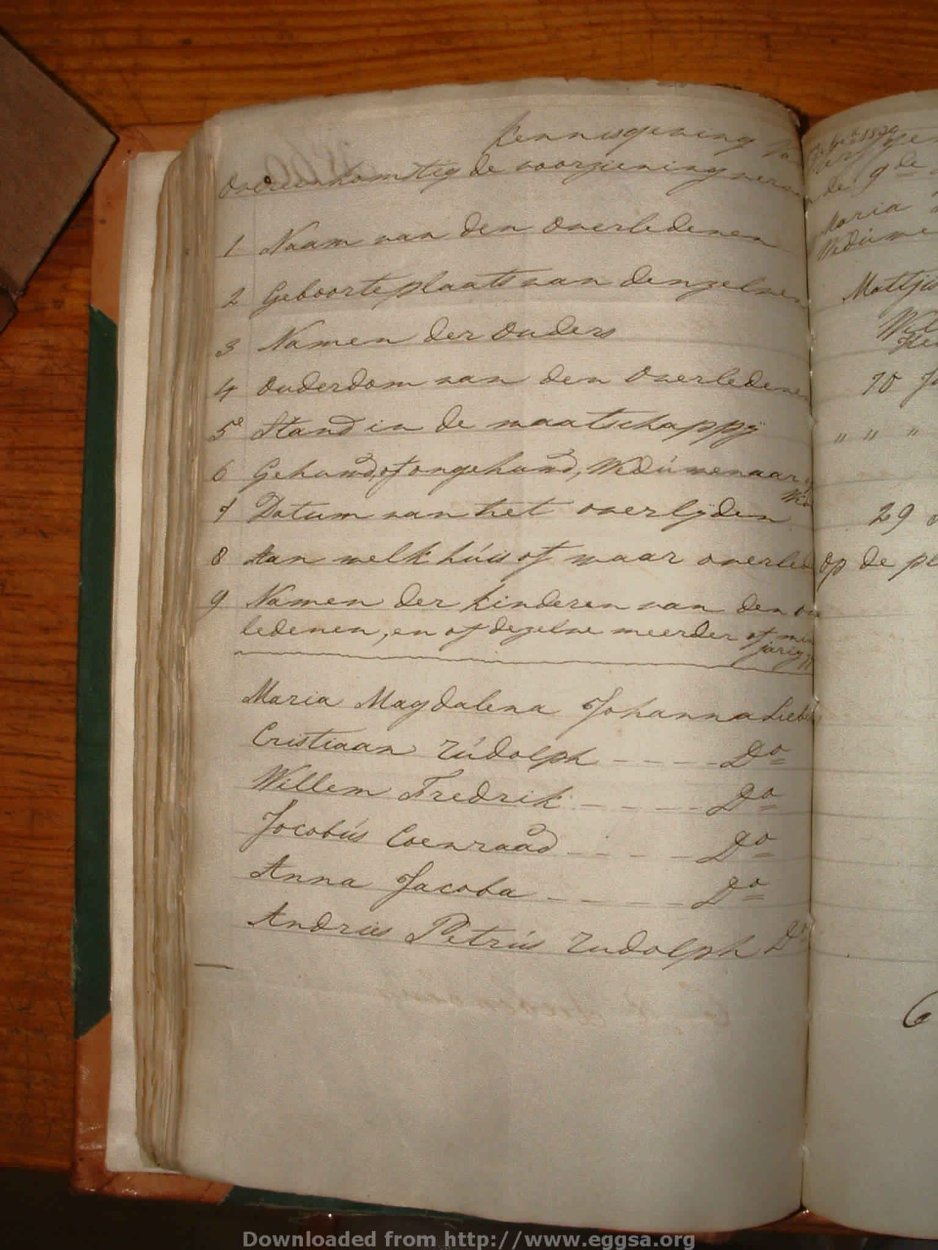 Kennisgeving
Overeenkomstig de voorziening
1 Naam van den Overledenen
2 Geboorteplaats van denzelven
3 Namen der Ouders
4 Ouderdom van den Overledenen
5e Stand in de maatschappij
6 Gehuwd, of ongehuwd, Wedúwenaar
7 Datum van het overlijden
8 Aan welk húis of waar overled
9 Namen der Kinderen van den
ledenen, en of dezelve meerder of min
jarig
Maria Magdalena Johanna Lieb
Cristiaan Rúdolph - - - - Do
Willem Fredrik - - - - Do
Jocobús Coenraad - - - - Do
Anna Jacoba - - - - Do
Andries Petrús Rudolph Do
de 9de
Maria
Wedúwe
Mattji
70
" " "
29
op de pl
6
Downloaded from http://www.eggsa.org